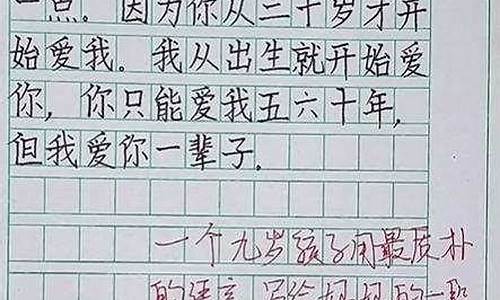 一点。因为你从二十岁才开
始爱我。我从出生就开始爱
你，你只能爱我五六十年，
但我爱你一辈子。
一个九岁孩子用最质朴
的语言，写给妈妈的一段